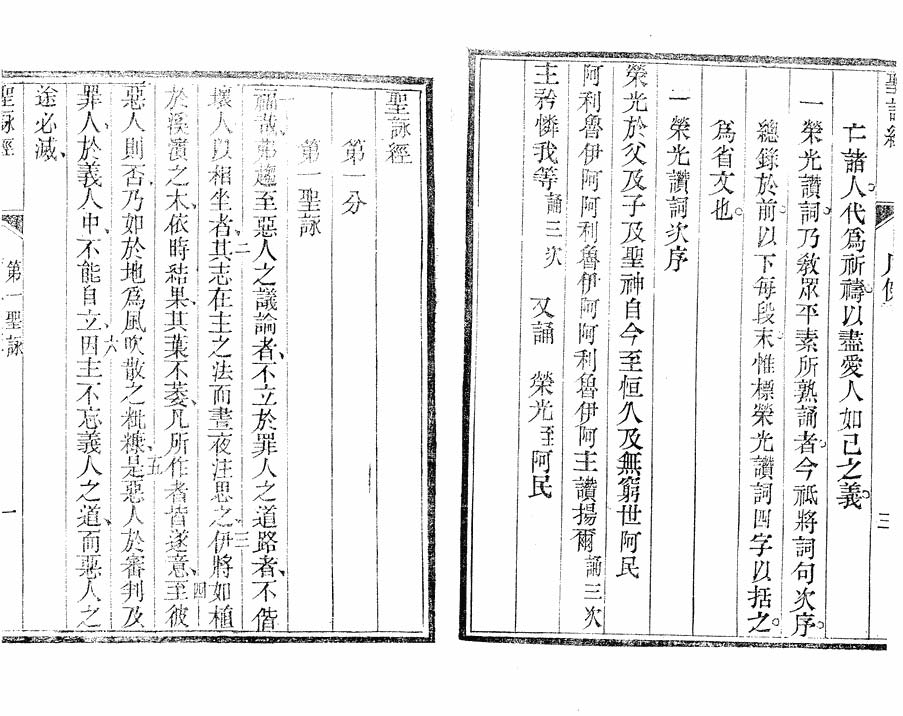 亡諸人代爲祈禱以盡愛人如己之義
一榮光讚詞乃敎眾平素所熟誦者今祗將詞句次序
總錄於前以下每段末惟標榮光讚詞四字以括之
爲省文也
一榮光讚詞次序
榮光於父及子及聖神自今至恒久及無窮世阿民
阿利魯伊阿阿利魯伊阿阿利魯伊阿主讚揚爾誦三次
主矜憐我等誦三次 又誦 榮光至阿民
三
聖詠經
第一分
第一聖詠
一福哉弗趨至惡人之議論者不立於罪人之道路者不偕
壞人以相坐者二其志在主之法而晝夜注思之三伊將如植
於溪濱之木依時結果其葉不萎凡所作者皆遂意四至彼
惡人則否乃如於地爲風吹散之粃糠五是惡人於審判及
罪人於義人中不能自立六因主不忘義人之道而惡人之
途必滅
聖詠經 第一聖詠 一